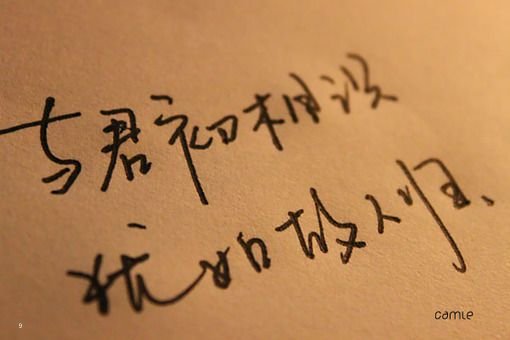 与君初相识
犹如故人归、
camie
9